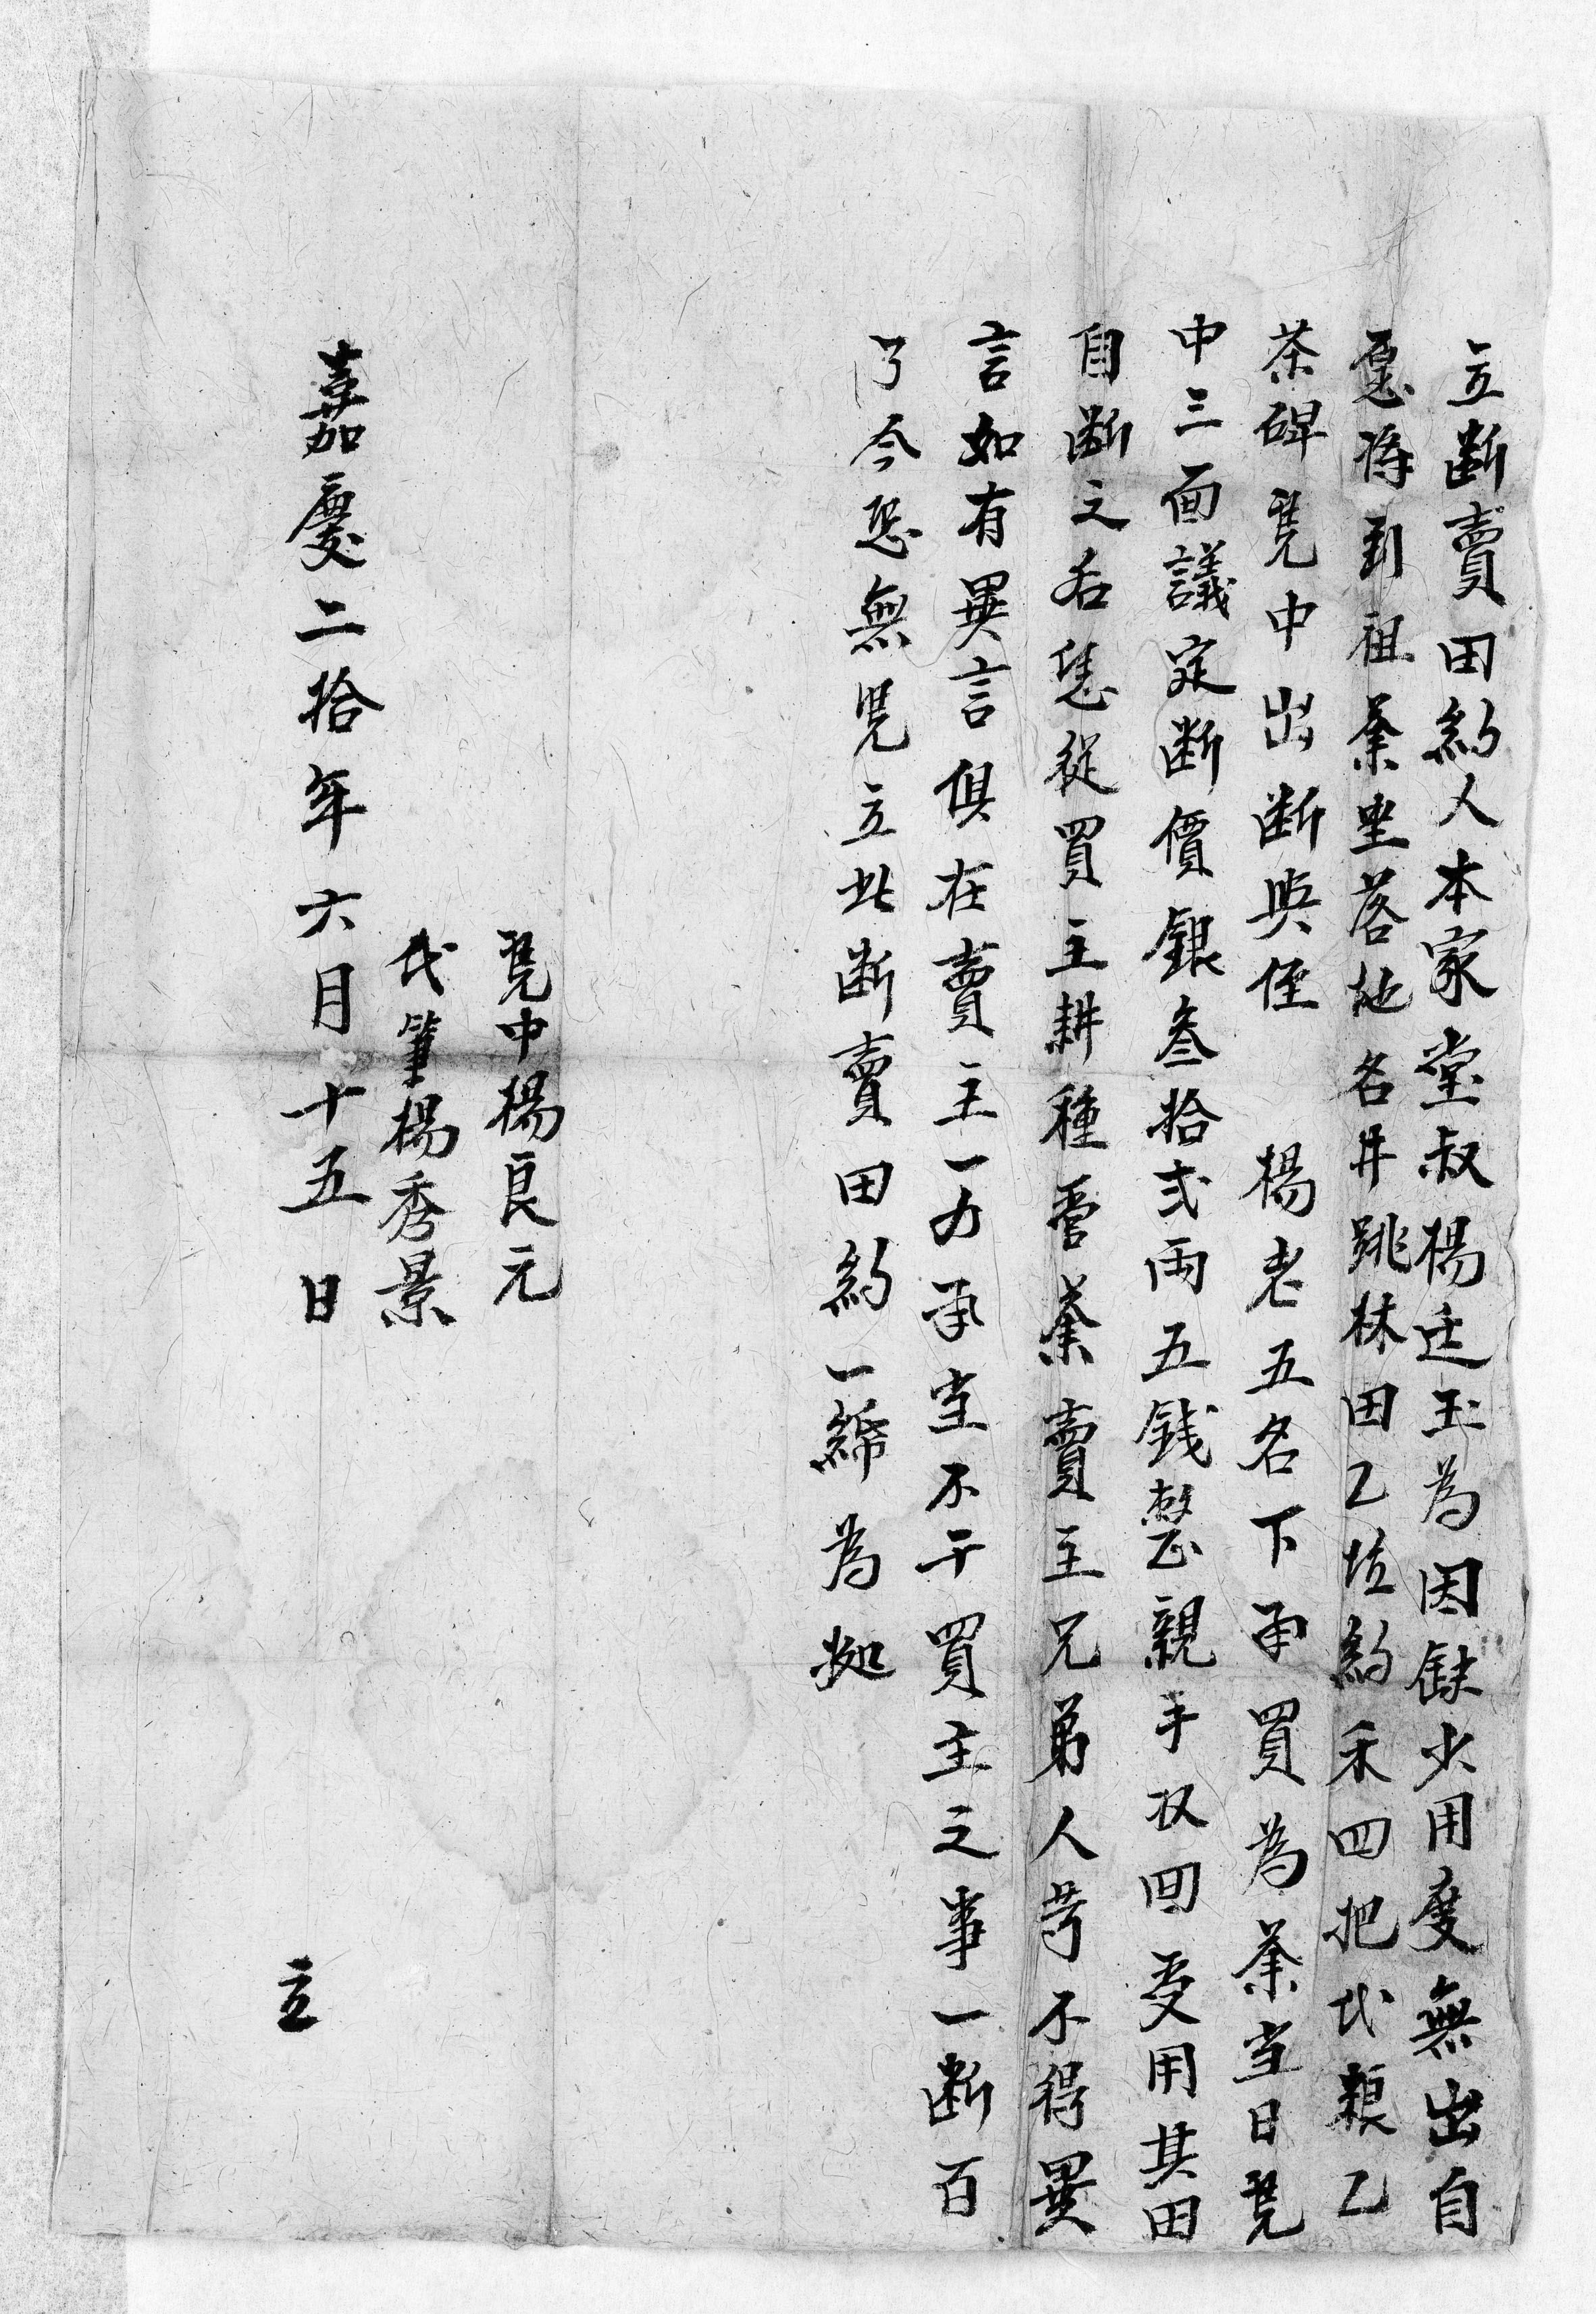 立断賣田約人本家堂叔楊廷玉為因缺少用度無出自
愿将到祖業坐落地名井跳林田乙坵約禾四把代粮乙
茶碑凴中出断與侄 楊老五名下承買為業当日凴
中三面議定断價銀叁拾弍両五錢整親手収回受用其田
自断之后恁從買主耕種管業賣主兄弟人等不得異
言如有異言俱在賣主一力承当不干買主之事一断百
了今恐無凴立此断賣田約一紙為拠
凴中楊良元
代筆楊秀景
嘉慶二拾年六月十五日 立